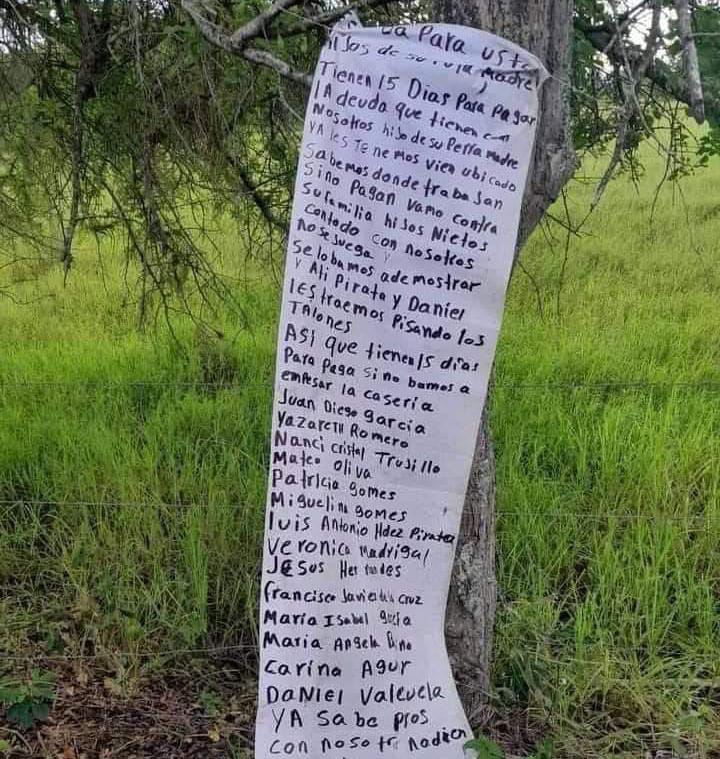 va Para uste
hijos de su Puta madre
Tienen 15 Dias Para Pagar
lA deuda que tienen con
Nosotros hijo de su Perra madre
YA les Tenemos vien ubicado
Sabemos donde traba Jan
Sino Pagan Vamo contra
Su familia hiJos Nietos
contodo con nosotros
no se Juega Y
Se lo bamos ademostrar
Y Ali Pirata y Daniel
lES traemos Pisando los
TAlones
ASi que tienen 15 dias
Para Paga Si no bamos a
empesar la caseria
Juan Diego garcia
Yazareth Romero
Nanci cristel Trujillo
Mateo Oliva
Patricia gomes
Miguelina gomes
luis Antonio Hdez Pirata
Veronica Madrigal
JESus
francisco Javier de la cruz
Maria ISabel
Maria Angela
Carina Agur
DaNIEl Valevcla
YA Sabe Pros
con nosotr nadien